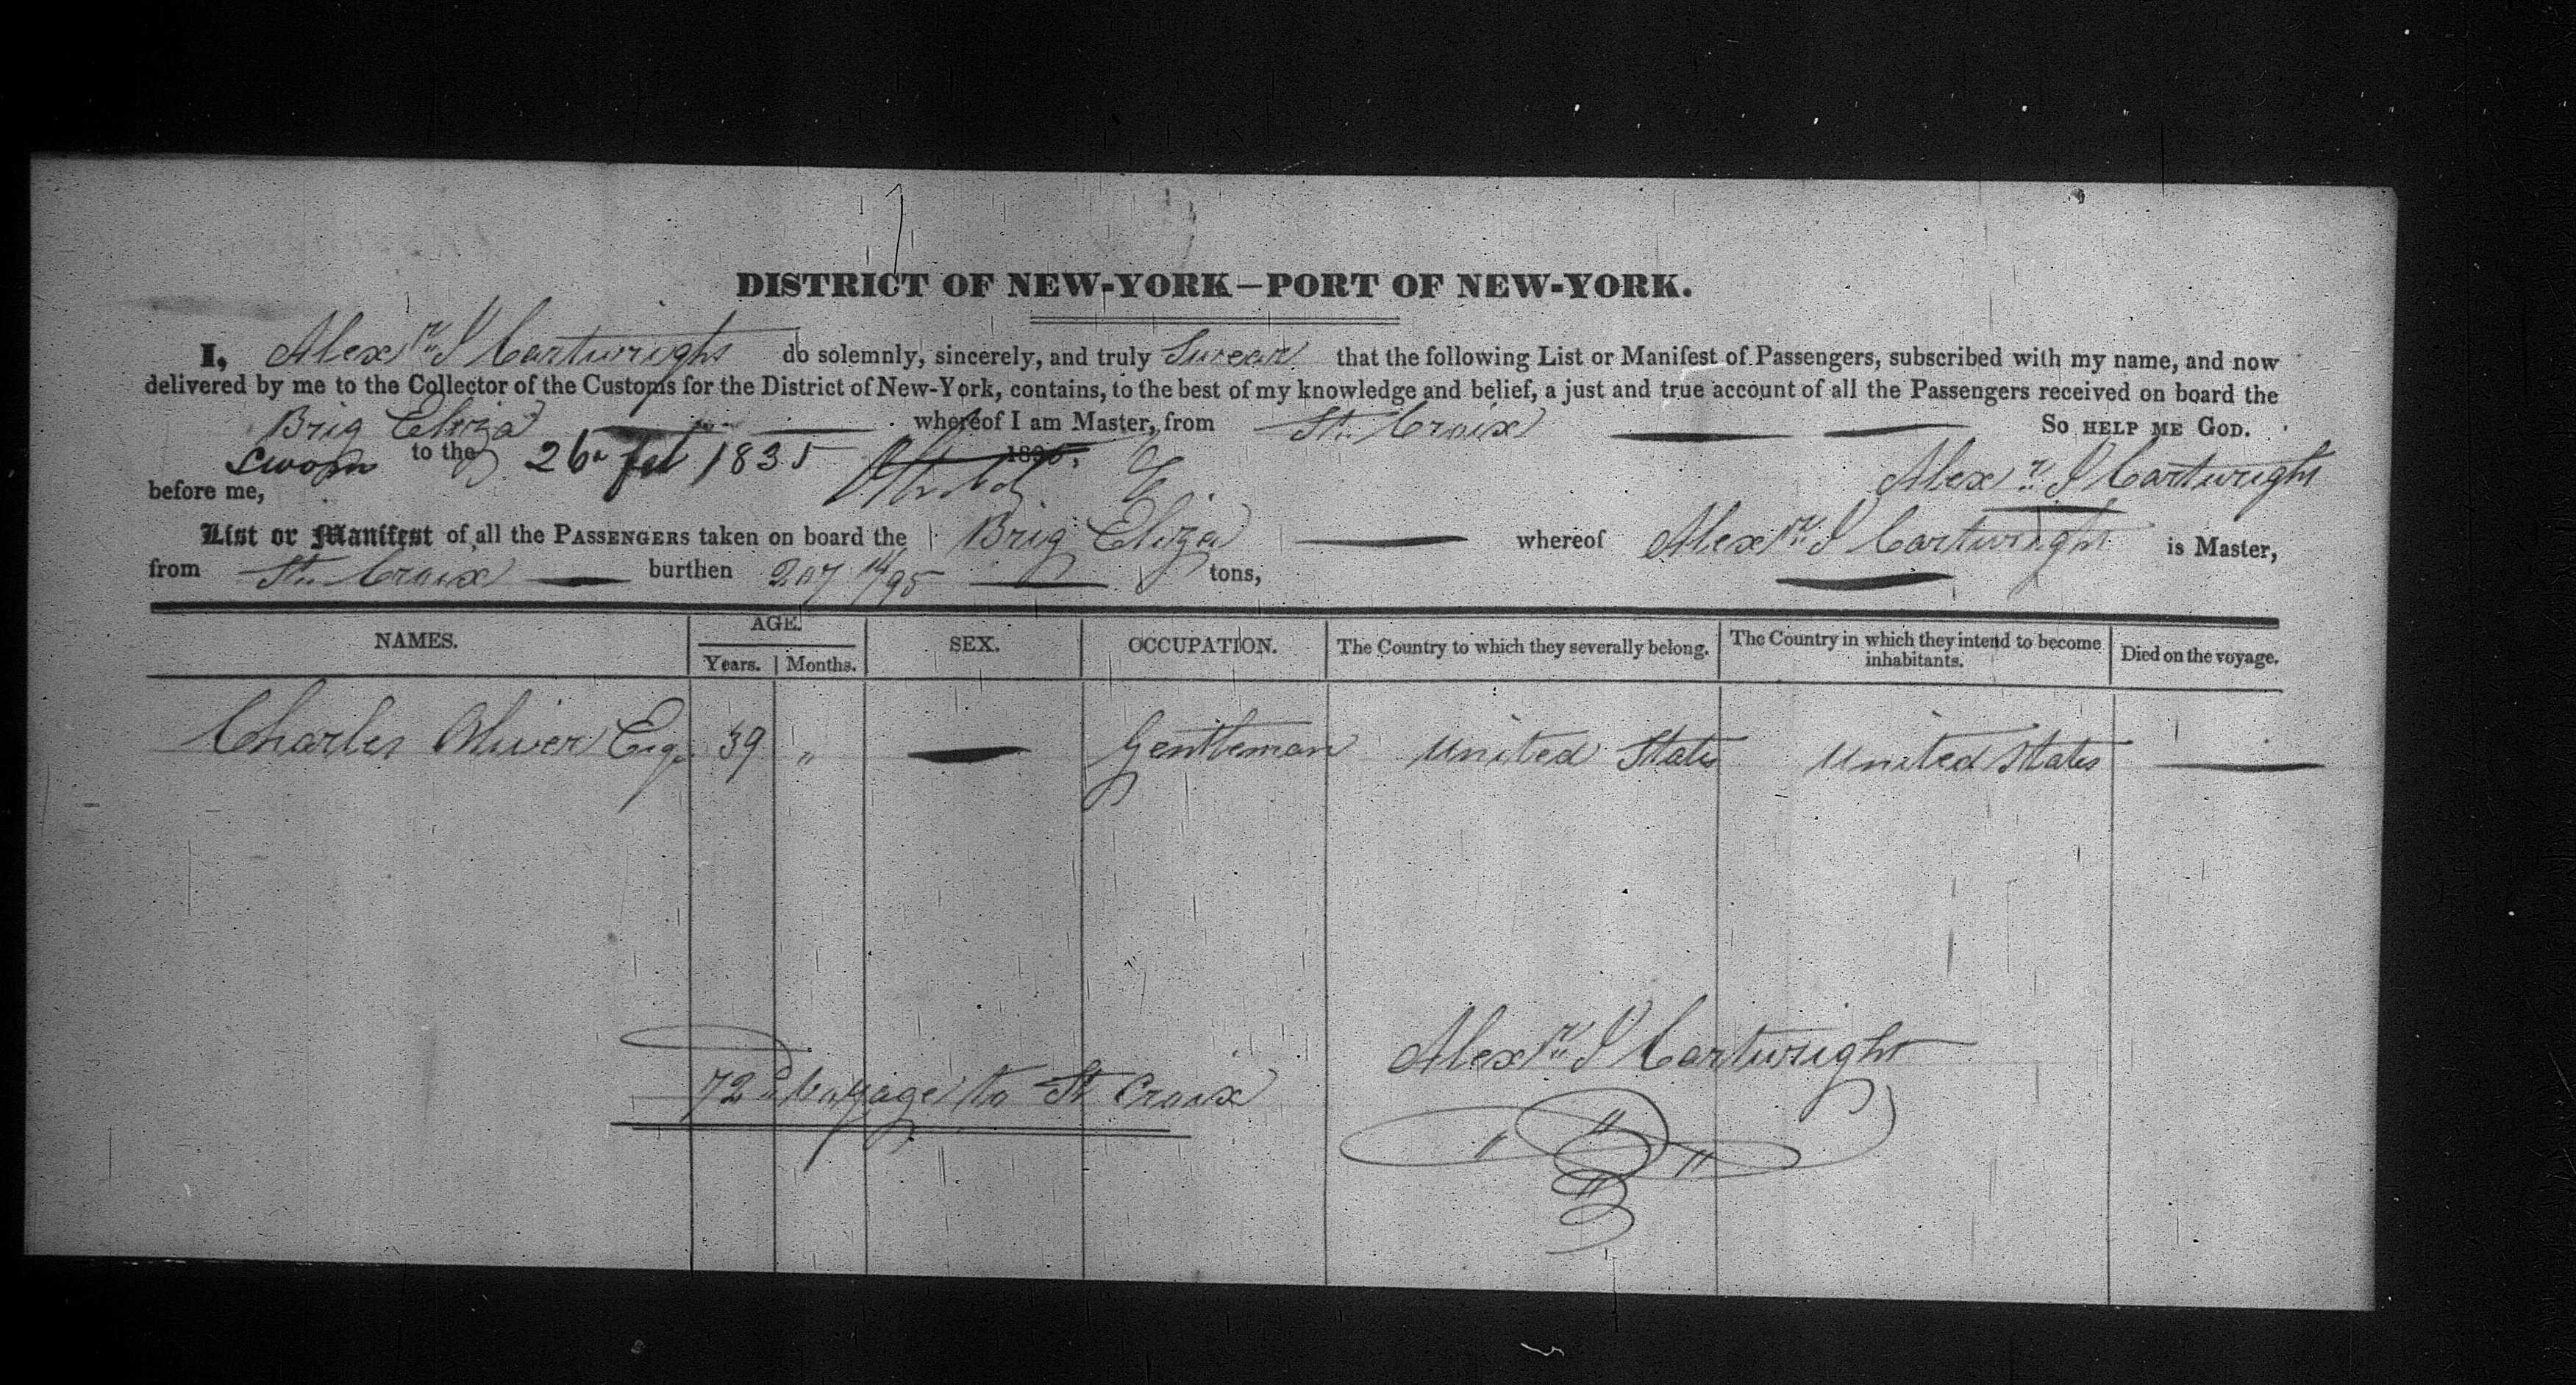 DISTRICT OF NEW-YORK—PORT OF NEW-YORK.
I, Alexr J Cartwright do solemnly, sincerely, and truly Swear that the following List or Manifest of Passengers, subscribed with my name, and now
delivered by me to the Collector of the Customs for the District of New-York, contains, to the best of my knowledge and belief, a just and true account of all the Passengers received on board the
Brig Eliza whereof I am Master, from St. Croix So HELP ME GOD.
Sworn to the 26 Feb 1835 Alexr J Cartwright
before me,
List or Manifest of all the PASSENGERS taken on board the Brig Eliza whereof Alexr J Cartwright is Master,
from St. Croix burthen 207 14/95 tons,
NAMES. AGE. SEX. OCCUPATION. The Country to which they severally belong. The Country in which they intend to become inhabitants. Died on the voyage.
Years. Months.
Charles Oliver Esq. 39 " — Gentleman United States United States —
Alexr J Cartwright
72d Voyage to St Croix